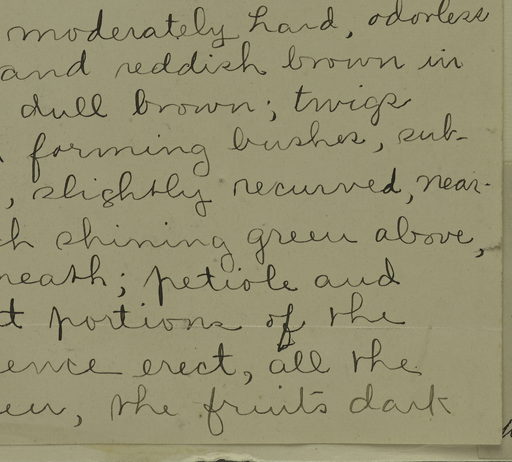 moderately hard, odorless
and reddish brown in
dull brown; twigs
forming bushes, sub-
, slightly recurved, near-
ch shining green above,
neath; petiole and
t portions of the
ence erect, all the
een, the fruits dark